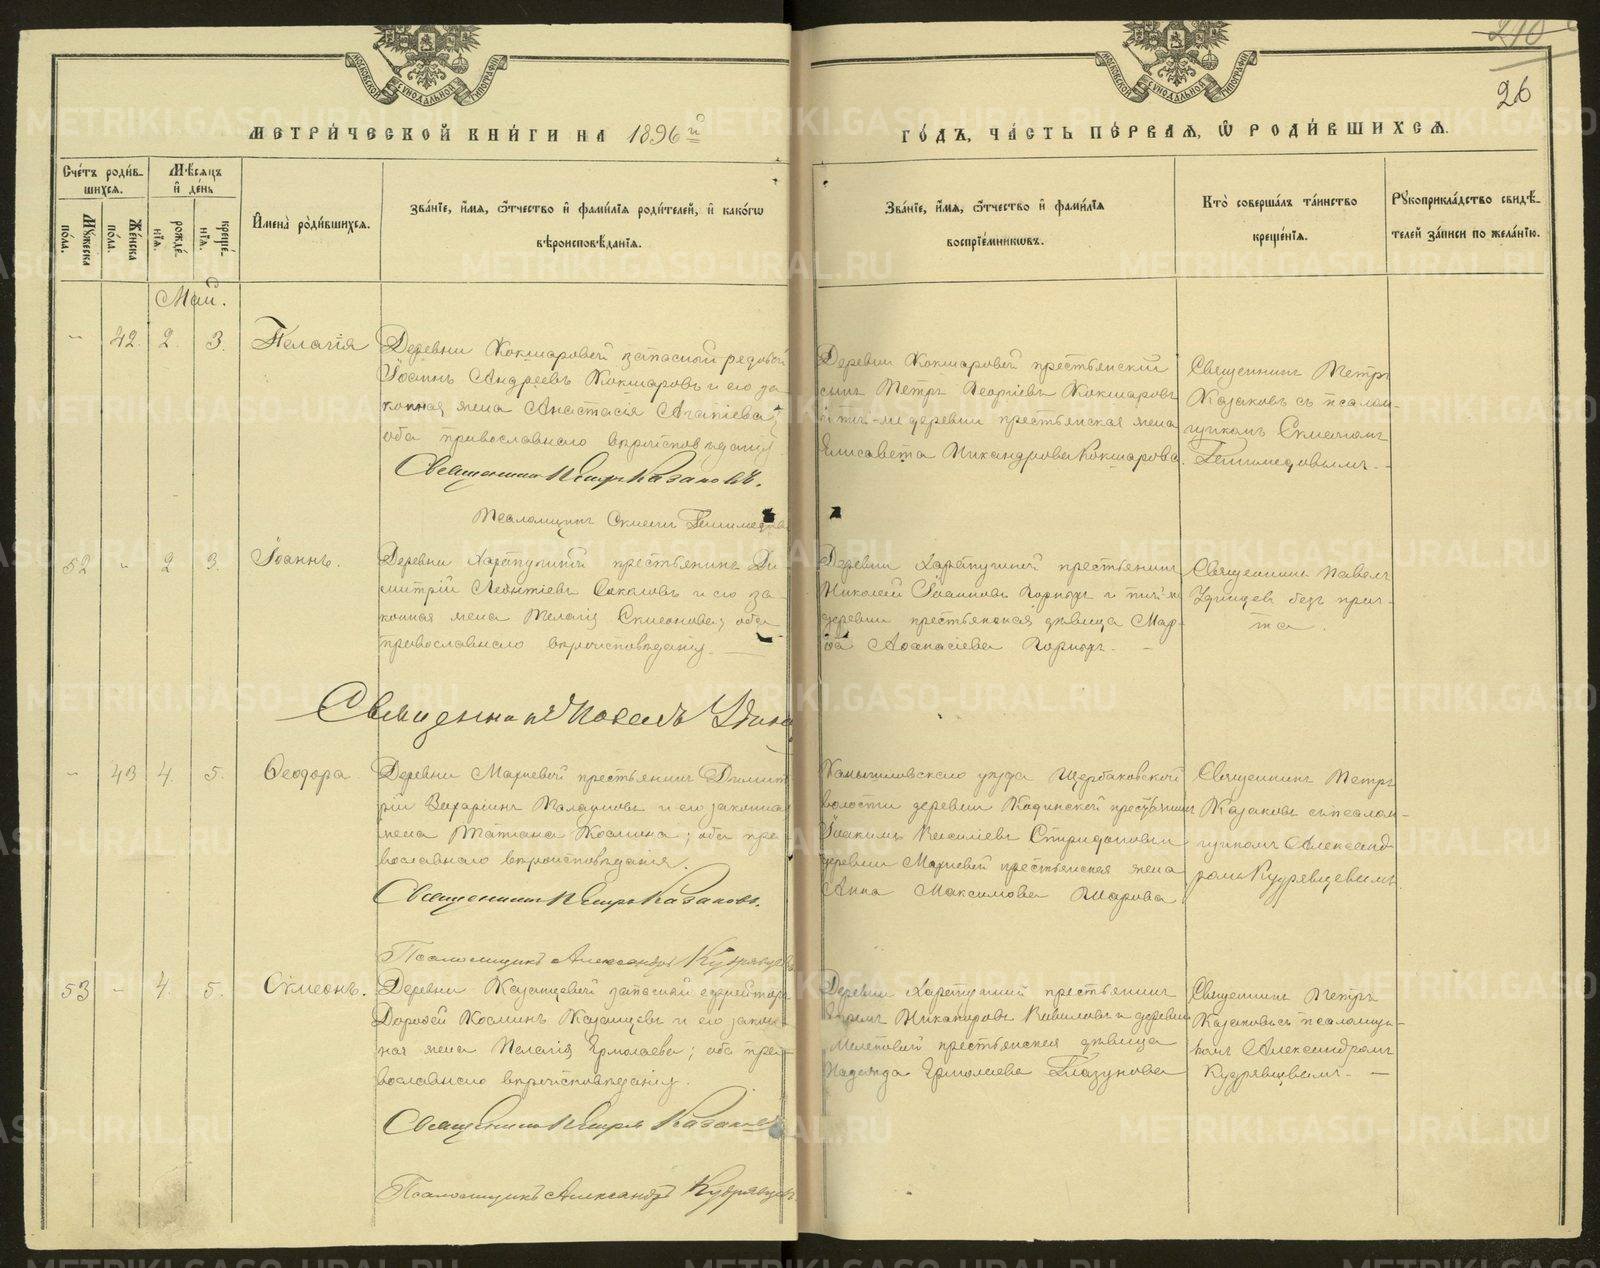 210
26
МОСКОВСКОЙ СѴНОДАЛЬНОЙ ТИПОГРАФІИ
МОСКОВСКОЙ СѴНОДАЛЬНОЙ ТИПОГРАФІИ
МЕТРИ́ЧЕСКОЙ КНИ́ГИ НА 1896й
ГО́ДЪ, ЧА́СТЬ ПЕ́РВАЯ, Ѡ҆ РОДИ́ВШИХСЯ.
Сче́тъ роди́в-
шихся.
Му́жеска
по́ла.
Же́нска
по́ла.
Мѣ́сяцъ
и҆ де́нь
рожде́-
нїя.
креще́-
нїя.
И҆мена̀ роди́вшихся.
Зва́нїе, и҆́мя, ѻ҆́тчество и҆ фами́лїя роди́телей, и҆ како́гѡ
вѣроисповѣ́данїя.
Зва́нїе, и҆́мя, ѻ҆́тчество и҆ фами́лїя
воспрїе́мникѡвъ.
Кто̀ соверша́лъ та́инство
креще́нїя.
Рꙋкоприкла́дство свидѣ́-
телей за́писи по жела́нїю.
Май.
- 42. 2. 3. Пелагія
Деревни Кокшаровой запасной рядовой
Іоаннъ Андреевъ Кокшаровъ и его за-
конная жена Анастасія Агапіева;
оба православнаго вѣроисповѣданія.
Священникъ Петръ Казаковъ.
Псаломщикъ Симеонъ
Деревни Кокшаровой крестьянскій
сынъ Петръ Георгіевъ Кокшаровъ
и той-же деревни крестьянская жена
Елисавета Никандрова Кокшарова.
Священникъ Петръ
Казаковъ съ псалом-
щикомъ Симеономъ
52 - 2 3. Іоаннъ.
Деревни Харапугиной крестьянинъ Ди-
митрій Леонтіевъ Соколовъ и его за-
конная жена Пелагія Симеонова; оба
православнаго вѣроисповѣданія.
Священникъ Павелъ
Деревни Харапугиной крестьянинъ
Николай Іоанновъ и той-же
деревни крестьянская дѣвица Мар-
ѳа Аѳанасіева
Священникъ Павелъ
безъ прич-
та.
- 43 4. 5. Ѳеодора
Деревни Марневой крестьянинъ Димит-
рій и его законная
жена Татіана Космина; оба пра-
вославнаго вѣроисповѣданія.
Священникъ Петръ Казаковъ.
Псаломщикъ Александръ Кудрявцевъ
Камышловскаго уѣзда Щербаковской
волости деревни Кодинской крестьянинъ
Іоакимъ Василіевъ Спиридоновъ и
деревни Марневой крестьянская жена
Анна Максимова Шарова.
Священникъ Петръ
Казаковъ съ псалом-
щикомъ Александ-
ромъ Кудрявцевымъ.
53 - 4. 5. Симеонъ.
Деревни Казанцевой запасной ефрейторъ
Дороѳей Косминъ Казанцевъ и его закон-
ная жена Пелагія Ермолаева; оба пра-
вославнаго вѣроисповѣданія.
Священникъ Петръ Казаковъ
Псаломщикъ Александръ Кудрявцевъ
Деревни Харапугиной крестьянинъ
Никаноровъ Вавиловъ и деревни
крестьянская дѣвица
Надежда Ермолаева Глазунова
Священникъ Петръ
Казаковъ съ псаломщи-
комъ Александромъ
Кудрявцевымъ.
METRIKI.GASO-URAL.RU